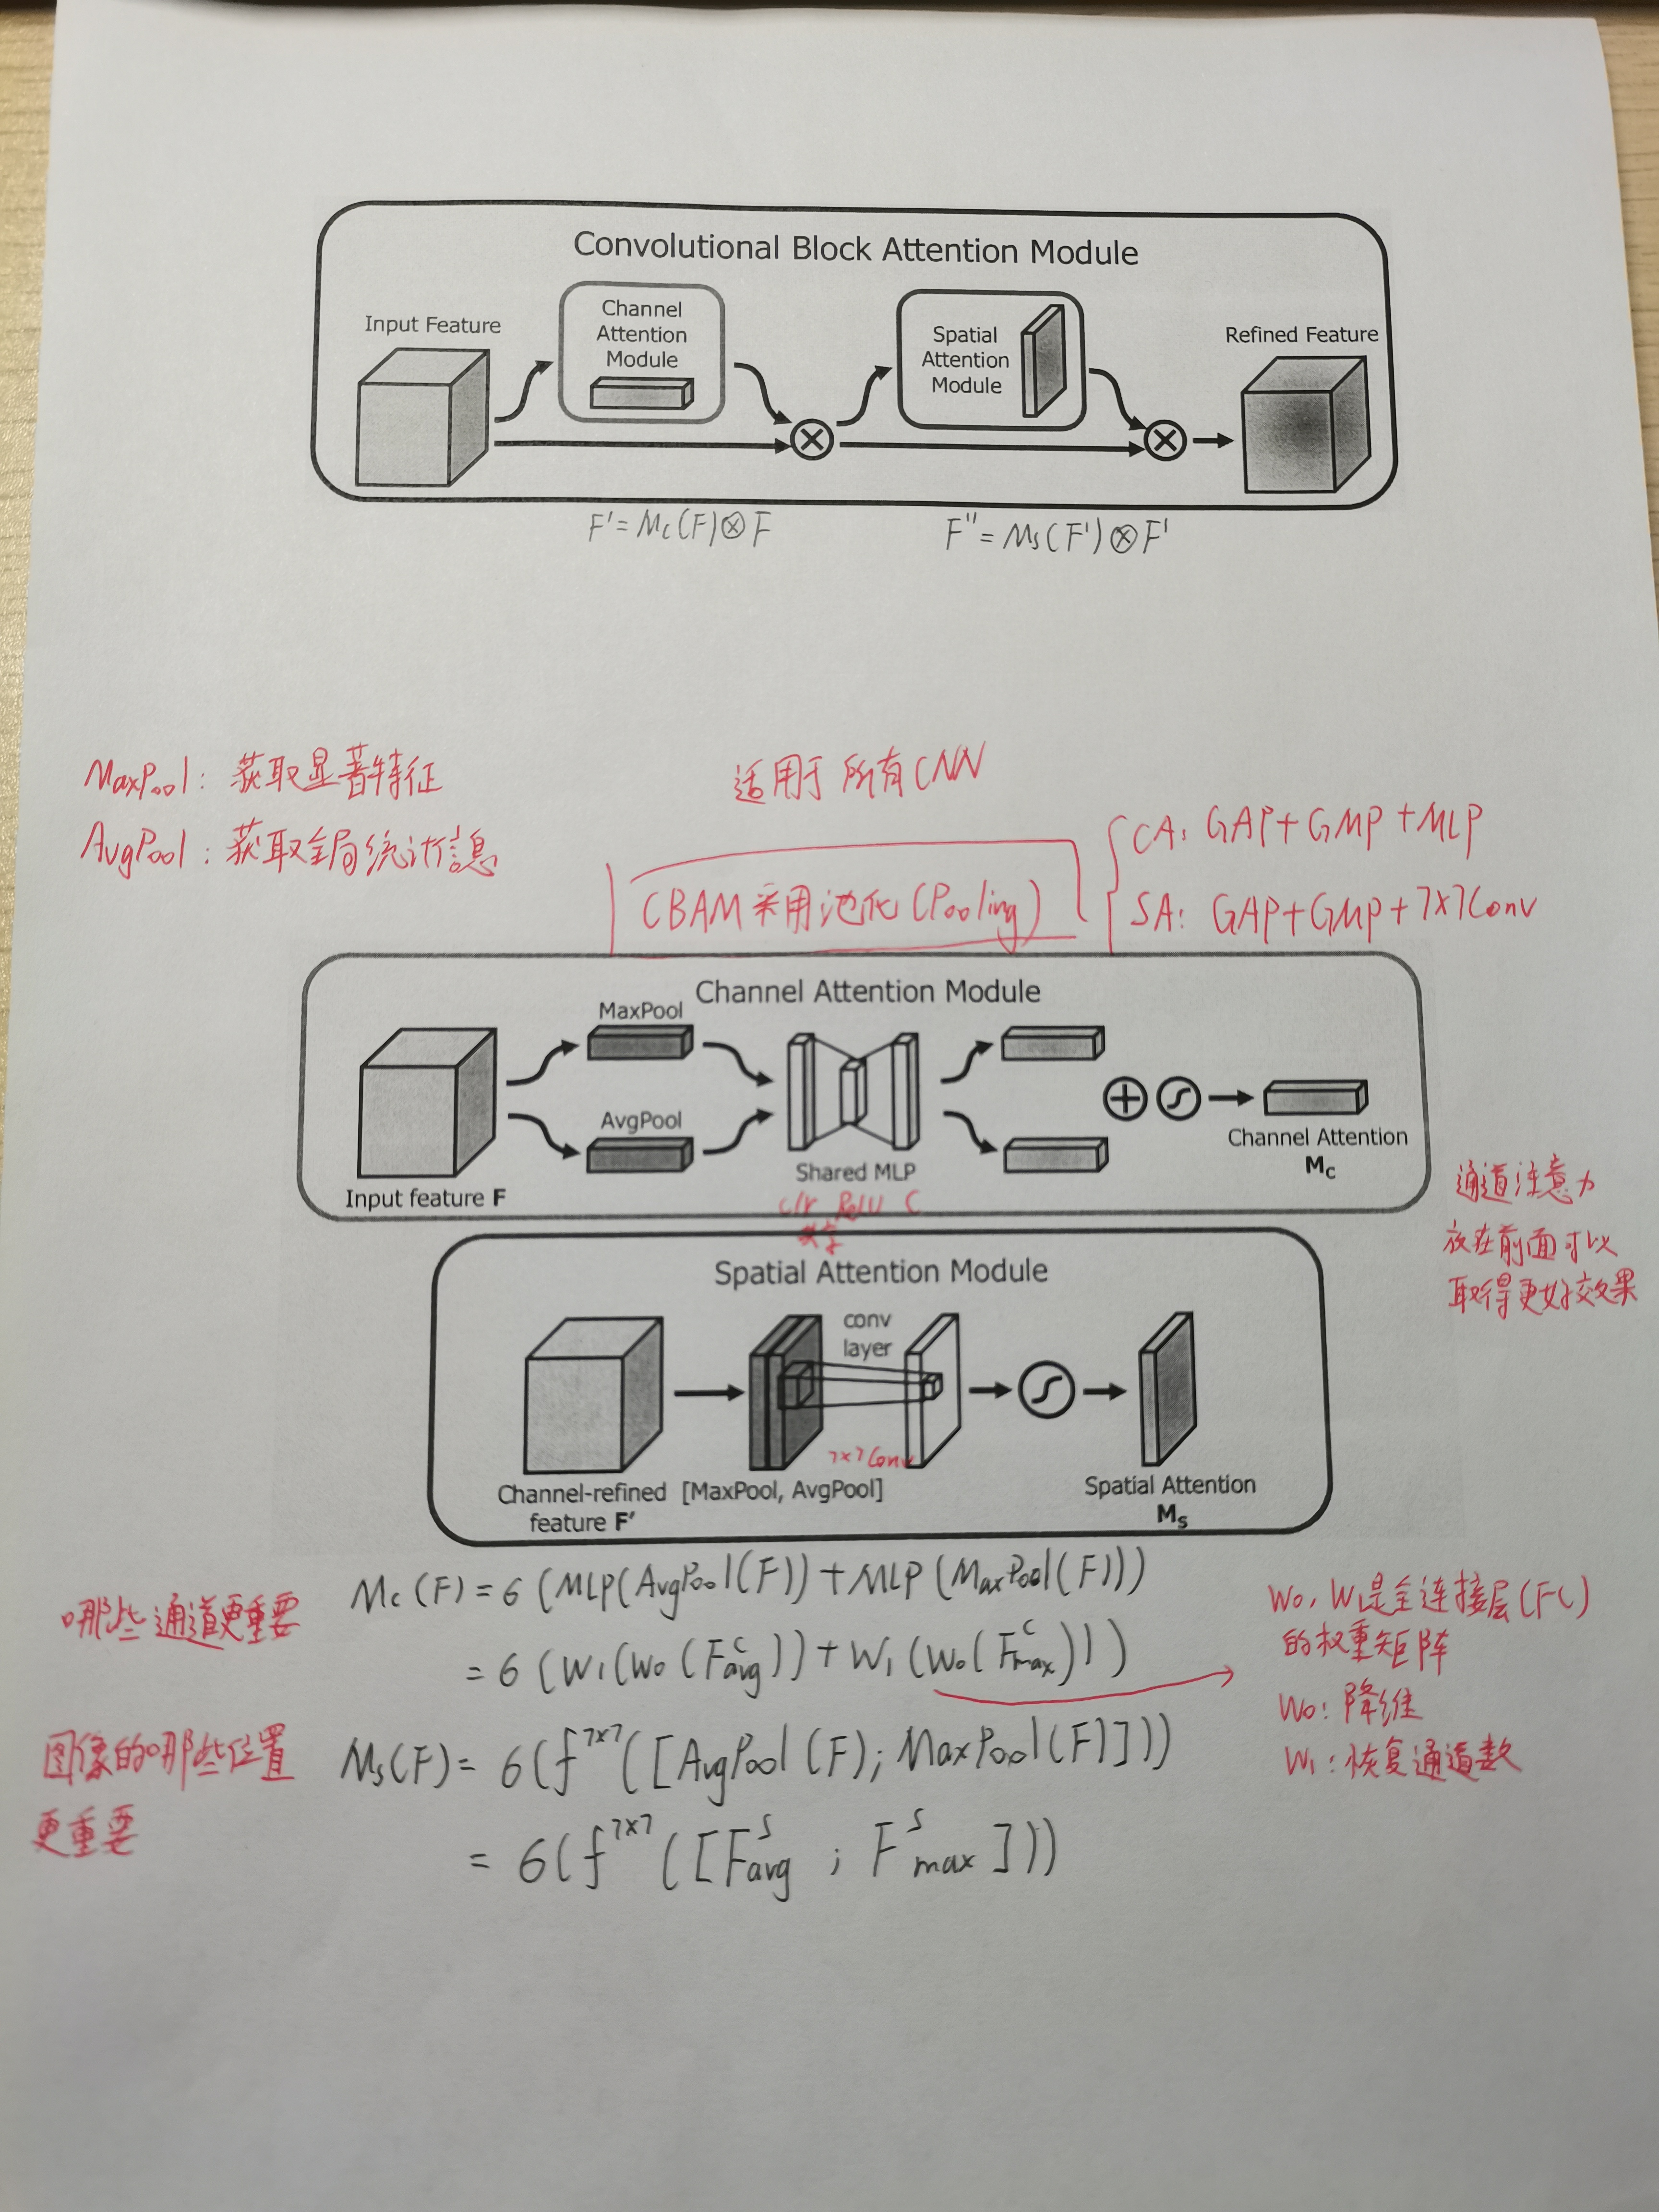 Convolutional Block Attention Module
Input Feature
Channel
Attention
Module
Spatial
Attention
Module
Refined Feature
F'=Mc(F)⊗F
F''=Ms(F')⊗F'
MaxPool: 获取显著特征
AvgPool: 获取全局统计信息
适用于所有CNN
CBAM采用池化(Pooling)
CA: GAP+GMP+MLP
SA: GAP+GMP+7×7Conv
Channel Attention Module
MaxPool
AvgPool
Input feature F
Shared MLP
c/r ReLU C
共享
Channel Attention
Mc
通道注意力
放在前面可以
取得更好效果
Spatial Attention Module
conv
layer
7×7Conv
Channel-refined
feature F'
[MaxPool, AvgPool]
Spatial Attention
Ms
哪些通道更重要
Mc(F)=6(MLP(AvgPool(F))+MLP(MaxPool(F)))
=6(W1(W0(F^c_avg))+W1(W0(F^c_max)))
W0, W1是全连接层(FC)
的权重矩阵
W0: 降维
W1: 恢复通道数
图像的哪些位置
更重要
Ms(F)=6(f^7×7([AvgPool(F);MaxPool(F)]))
=6(f^7×7([F^s_avg;F^s_max]))